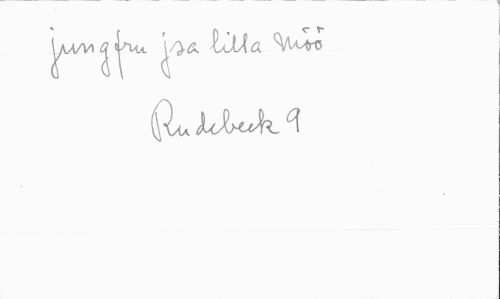 jungfru jsa lilla möö
Rudebeck 9